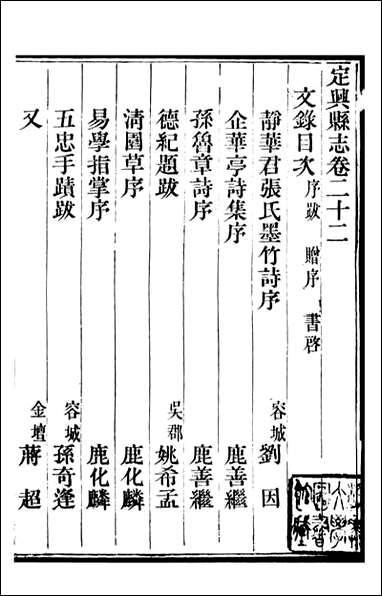 定興縣志卷二十二
文錄目次 序跋 贈序 書啓
靜華君張氏墨竹詩序 容城 劉因
企華亭詩集序 鹿善繼
孫魯章詩序 鹿善繼
德紀題跋 吳郡 姚希孟
淸圖草序 鹿化麟
易學指掌序 鹿化麟
五忠手蹟跋 容城 孫奇逢
又 金壇 蔣超